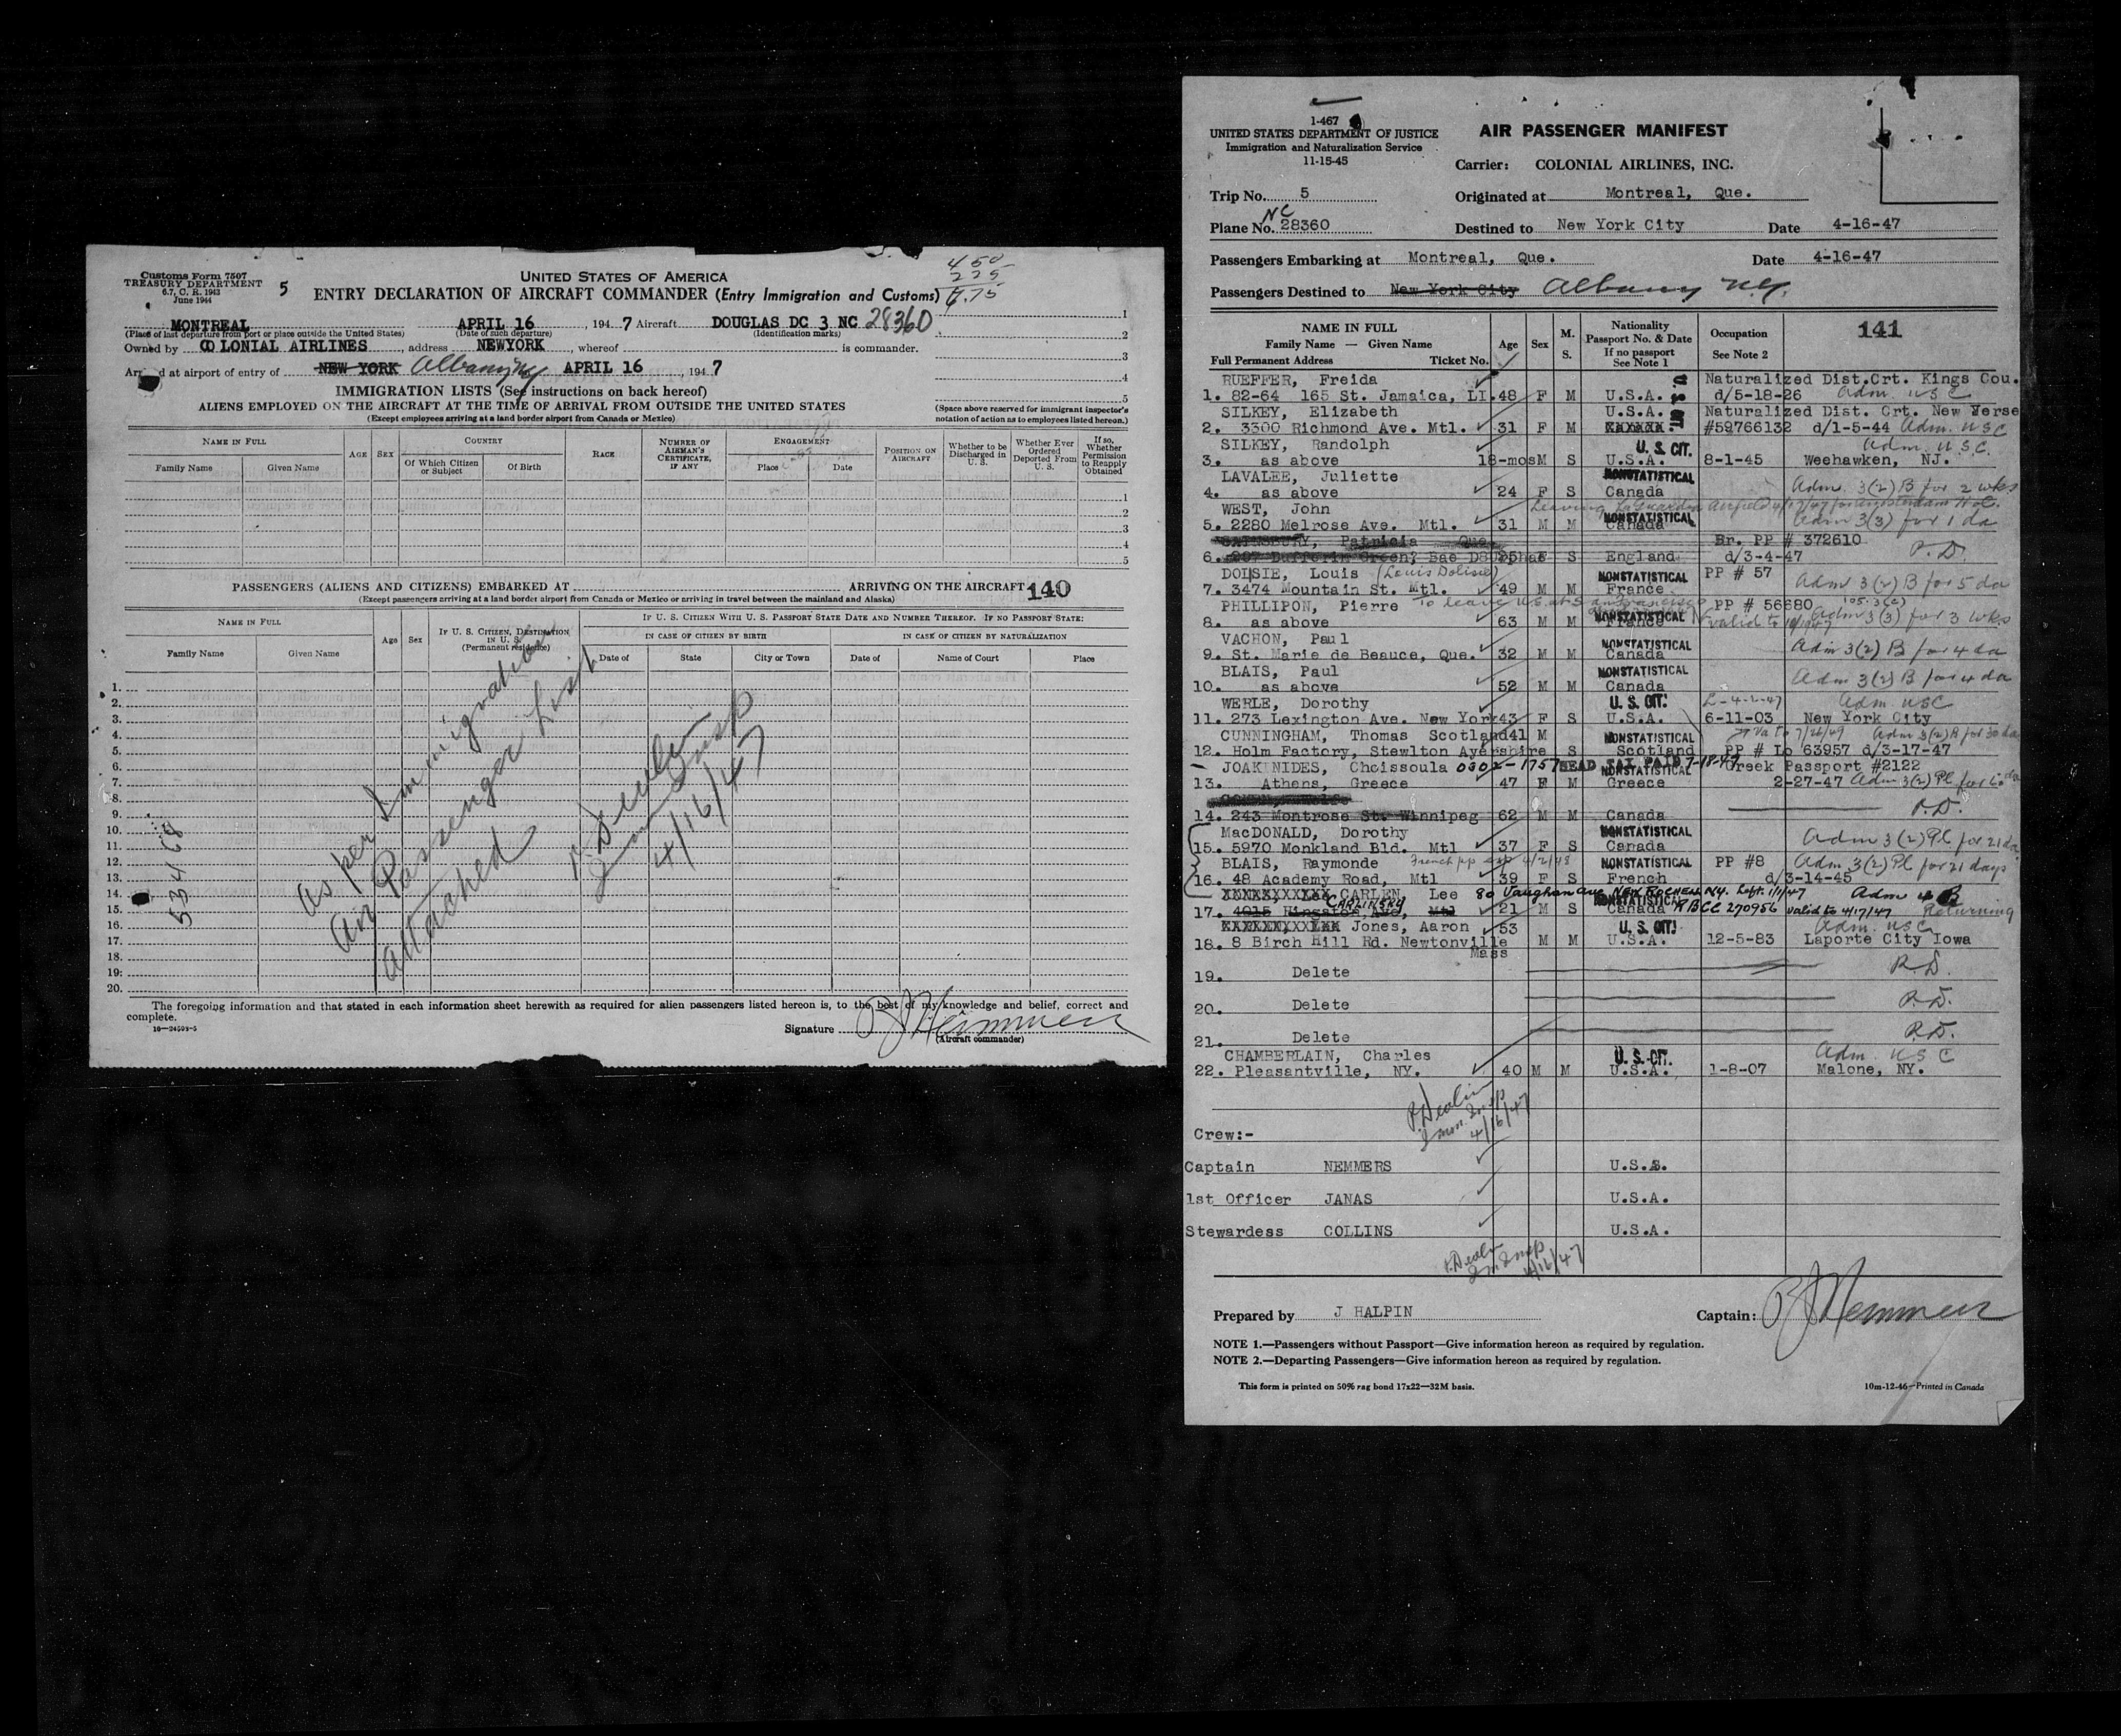 Customs Form 7507
TREASURY DEPARTMENT
6.7, C. R. 1943
June 1944
5
UNITED STATES OF AMERICA
ENTRY DECLARATION OF AIRCRAFT COMMANDER (Entry Immigration and Customs)
4 50
2 25
MONTREAL APRIL 16, 1947 Aircraft DOUGLAS DC 3 NC 28360
(Place of last departure from port or place outside the United States) (Date of such departure) (Identification marks)
Owned by COLONIAL AIRLINES, address NEWYORK, whereof is commander.
at airport of entry of NEW YORK Albany NY APRIL 16, 1947
1
2
3
4
5
IMMIGRATION LISTS (See instructions on back hereof)
ALIENS EMPLOYED ON THE AIRCRAFT AT THE TIME OF ARRIVAL FROM OUTSIDE THE UNITED STATES
(Except employees arriving at a land border airport from Canada or Mexico)
(Space above reserved for immigrant inspector's notation of action as to employees listed hereon.)
NAME IN FULL
Family Name Given Name
AGE SEX
COUNTRY
Of Which Citizen or Subject Of Birth
RACE
NUMBER OF AIRMAN'S CERTIFICATE, IF ANY
ENGAGEMENT
Place Date
POSITION ON AIRCRAFT
Whether to be Discharged in U. S.
Whether Ever Ordered Deported From U. S.
If so, Whether Permission to Reapply Obtained
1
2
3
4
5
PASSENGERS (ALIENS AND CITIZENS) EMBARKED AT ARRIVING ON THE AIRCRAFT 140
(Except passengers arriving at a land border airport from Canada or Mexico or arriving in travel between the mainland and Alaska)
NAME IN FULL
Family Name Given Name
Age Sex
IF U. S. CITIZEN, DESTINATION IN U. S.
(Permanent residence)
IF U. S. CITIZEN WITH U. S. PASSPORT STATE DATE AND NUMBER THEREOF. IF NO PASSPORT STATE:
IN CASE OF CITIZEN BY BIRTH IN CASE OF CITIZEN BY NATURALIZATION
Date of State City or Town Date of Name of Court Place
1.
2.
3.
4.
5.
6.
7.
8.
9.
10.
11.
12.
13.
14.
15.
16.
17.
18.
19.
20.
as per Immigration
Air Passenger List
attached
P. Devlin
Imm Insp
4/16/47
53468
The foregoing information and that stated in each information sheet herewith as required for alien passengers listed hereon is, to the best of my knowledge and belief, correct and
complete.
16—24593-5
Signature
(Aircraft commander)
1-467
UNITED STATES DEPARTMENT OF JUSTICE
Immigration and Naturalization Service
11-15-45
AIR PASSENGER MANIFEST
Carrier: COLONIAL AIRLINES, INC.
Trip No. 5 Originated at Montreal, Que.
Plane No. NC 28360 Destined to New York City Date 4-16-47
Passengers Embarking at Montreal, Que. Date 4-16-47
Passengers Destined to New York City Albany N.Y.
NAME IN FULL
Family Name — Given Name
Full Permanent Address Ticket No.
Age Sex M. S.
Nationality
Passport No. & Date
If no passport
See Note 1
Occupation
See Note 2
141
RUEFFER, Freida Naturalized Dist.Crt. Kings Cou.
1. 82-64 165 St. Jamaica, LI. 48 F M U.S.A. d/5-18-26 Adm. USC
SILKEY, Elizabeth U.S.A. Naturalized Dist. Crt. New Yerse
2. 3300 Richmond Ave. Mtl. 31 F M #59766132 d/1-5-44 Adm. USC
SILKEY, Randolph U. S. CIT. Adm. USC.
3. as above 18-mos M S U.S.A. 8-1-45 Weehawken, NJ.
LAVALEE, Juliette NONSTATISTICAL
4. as above 24 F S Canada Adm. 3(2)B for 2 wks
WEST, John Leaving LaGuardia Airfield 4/17/47 for Amsterdam Hol.
5. 2280 Melrose Ave. Mtl. 31 M M NONSTATISTICAL Canada Adm 3(3) for 1 da
Patricia Que. Br. PP # 372610
6. 207 Dufferin 25 F S England d/3-4-47 P.D.
DOISIE, Louis (Louis Dolisie) NONSTATISTICAL PP # 57
7. 3474 Mountain St. Mtl. 49 M M France Adm 3(2)B for 5 da
PHILLIPON, Pierre To leave U.S. at San Francisco PP # 56680
8. as above 63 M M NONSTATISTICAL France Adm 3(3) for 3 wks
VACHON, Paul NONSTATISTICAL
9. St. Marie de Beauce, Que. 32 M M Canada Adm 3(2) B for 4 da
BLAIS, Paul NONSTATISTICAL
10. as above 52 M M Canada Adm 3(2)B for 4 da
WERLE, Dorothy U. S. CIT. L-4-2-47 Adm. USC
11. 273 Lexington Ave. New York 43 F S U.S.A. 6-11-03 New York City
CUNNINGHAM, Thomas Scotland 41 M NONSTATISTICAL Adm 3(2)B for 30 da
12. Holm Factory, Stewlton Ayershire S Scotland PP # Lo 63957 d/3-17-47
JOAKINIDES, Choissoula 0302-1757 HEAD TAX PAID 7-18-47 Greek Passport #2122
13. Athens, Greece 47 F M NONSTATISTICAL Greece 2-27-47 Adm 3(2)Pl for
14. 243 Montrose St. Winnipeg 62 M M Canada P.D.
MacDONALD, Dorothy NONSTATISTICAL
15. 5970 Monkland Bld. Mtl 37 F S Canada Adm 3(2)Pl for 21 da
BLAIS, Raymonde French pp exp 4/2/48 NONSTATISTICAL PP #8 Adm 3(2)Pl for 21 days
16. 48 Academy Road, Mtl 39 F S French d/3-14-45
CARLEN, Lee 80 Vaughan Ave New Rochelle NY. Left 1/1/47 Adm 4 B
17. 4015 Kingston Ave, Mtl CARLINSKY 21 M S NONSTATISTICAL Canada RBCC 270956 valid to 4/17/47 Returning
Jones, Aaron 53 U. S. CIT. Adm. USC
18. 8 Birch Hill Rd. Newtonville Mass M M U.S.A. 12-5-83 Laporte City Iowa
19. Delete P.D.
20. Delete P.D.
21. Delete P.D.
CHAMBERLAIN, Charles U. S. CIT. Adm. USC
22. Pleasantville, NY. 40 M M U.S.A. 1-8-07 Malone, NY.
P. Devlin
Imm. Insp
4/16/47
Crew:-
Captain NEMMERS U.S.A.
1st Officer JANAS U.S.A.
Stewardess COLLINS U.S.A.
P. Devlin
Im. Insp
4/16/47
Prepared by J HALPIN Captain:
NOTE 1.—Passengers without Passport—Give information hereon as required by regulation.
NOTE 2.—Departing Passengers—Give information hereon as required by regulation.
This form is printed on 50% rag bond 17x22—32M basis. 10m-12-46—Printed in Canada